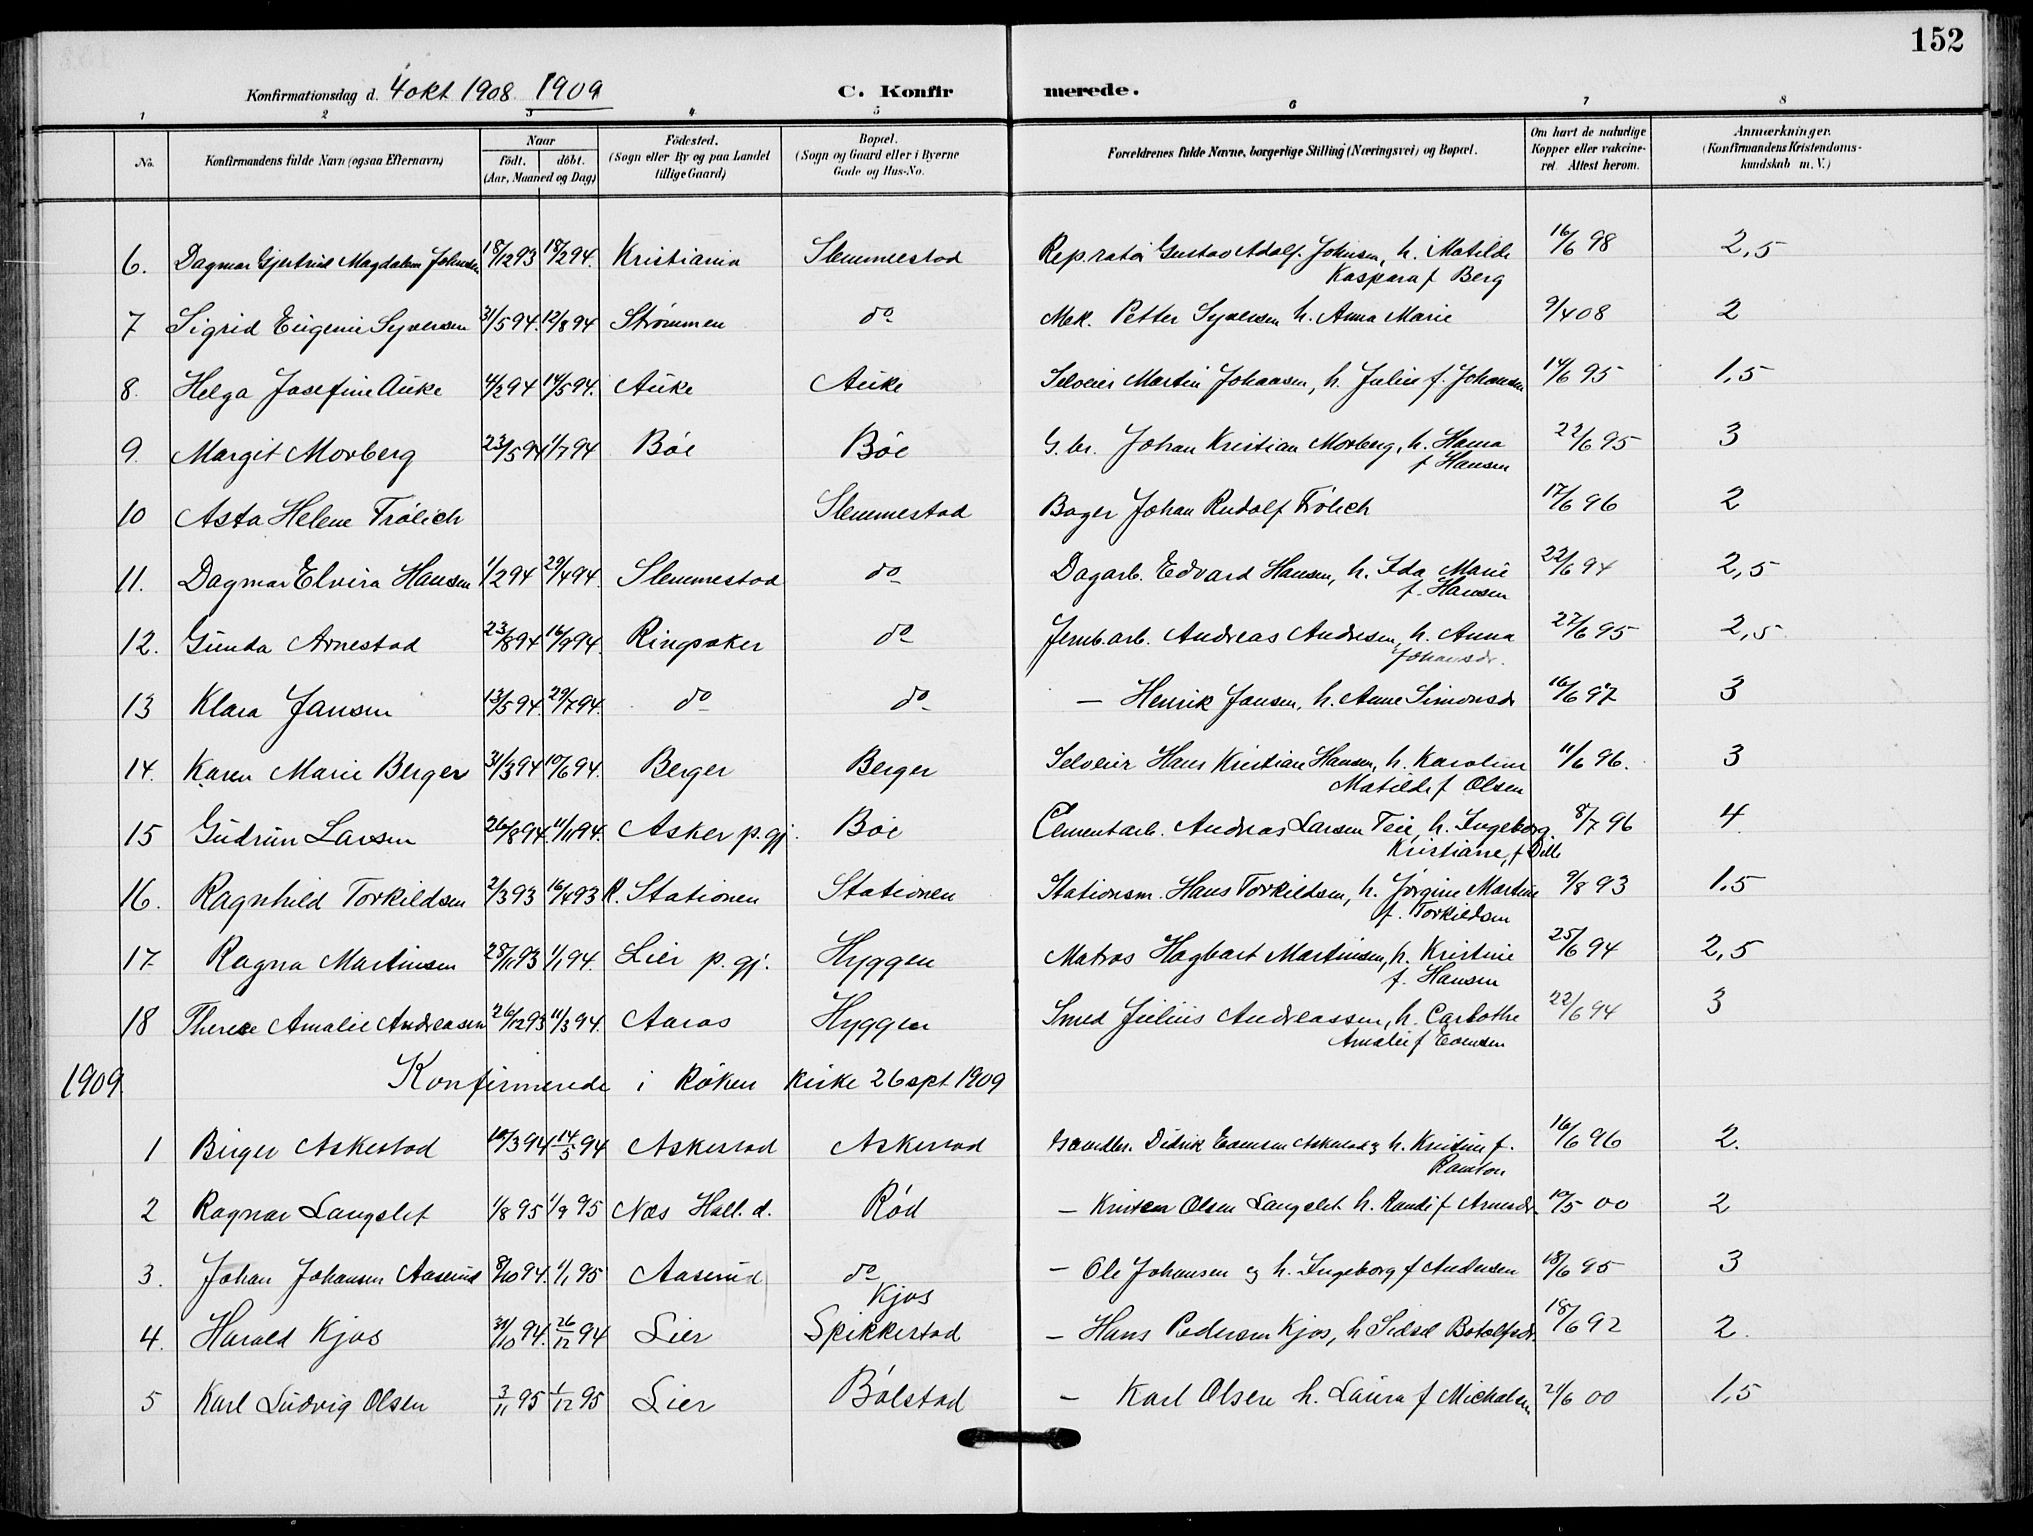 152
Konfirmationsdag d. 4 okt 1908. 1909
C. Konfirmerede.
1 2 3 4 5 6 7 8
No. Konfirmandens fulde Navn (ogsaa Efternavn) Naar födt. döbt. (Aar, Maaned og Dag) Födested. (Sogn eller By og paa Landet tillige Gaard) Bopæl. (Sogn og Gaard eller i Byerne Gade og Hus-No. Forældrenes fulde Navne, borgerlige Stilling (Næringsvei) og Bopæl. Om havt de naturlige Kopper eller vakcineret. Attest herom. Anmærkninger. (Konfirmandens Kristendomskundskab m. V.)
6. Dagmar Gjertrud Magdalene Johnsen 18/12 93 18/2 94. Kristiania Slemmestad Rep.ratör Gustav Adolf Johnsen, h. Matilde 16/6 98 2,5
Kaspara f Berg
7 Sigrid Eugenie Syversen 31/5 94. 12/8 94 Strømmen do Mek. Petter Syversen h. Anna Marie 9/4 08 2
8. Helga Josefine Auke 4/2 94 14/5 94. Auke Auke Selveier Martin Johansen, h. Julie f. Johansen 14/6 95 1,5
9. Margit Morberg 23/5 94 1/7 94 Böe Böe G.br. Johan Kristian Morberg, h. Hanna 22/6 95 3
f Hansen
10 Asta Helene Frölich Slemmestad Bager Johan Rudolf Frölich 17/6 96 2
11. Dagmar Elvira Hansen 1/2 94 29/4 94. Slemmestad do Dagarb. Edvard Hansen, h. Ida Marie 22/6 94 2,5
f. Hansen
12. Gunda Arnestad 23/8 94 16/9 94. Ringsaker do Jernb.arb. Andreas Andresen, h. Anna 27/6 95 2,5
Johansdr.
13 Klara Jansen 13/5 94. 29/7 94. do do — Henrik Jansen, h. Anne Simonsdr 16/6 97 3
14. Karen Marie Berger 31/3 94 10/6 94. Berger Berger Selveier Hans Kristian Hansen, h. Karoline 11/6 96. 3
Matilde f Olsen
15 Gudrun Larsen 26/8 94. 11/11 94. Asker p.gj. Böe Cementarb. Andreas Larsen Teie, h. Ingeborg 8/7 96 4
Kristiane, f Dille
16. Ragnhild Torkildsen 2/3 93 16/4 93 R. Stationen Stationen Stationsm. Hans Torkildsen, h. Jørgine Martine 9/8 93 1,5
f. Torkildsen
17 Ragna Martinsen 28/11 93 1/1 94. Lier p.gj. Hyggen Matros Hagbart Martinsen, h. Kristine 25/6 94 2,5
f. Hansen
18 Therese Amalie Andreasen 26/12 93 11/3 94. Aaros Hyggen Smed Julius Andreassen, h. Carlothe 22/6 94 3
Amalie f Evensen
1909. Konfirmerede i Röken kirke 26 sept. 1909
1 Birger Askestad 10/3 94 14/5 94 Askestad Askestad Didrik Evensen Askestad og h. Kristine f. 16/6 96 2.
2 Ragnar Langslet 1/8 95 1/9 95 Næs Hall.d. Röd — Kristen Olsen Langslet h. Randi f 10/5 00 2
3. Johan Johansen Aaserud 8/10 94. 1/1 95 Aaserud do — Ole Johansen og h. Ingeborg f Andersen 18/6 95 3
Kjos
4. Harald Kjos 31/10 94. 26/12 94 Lier Spikkestad — Hans Pedersen Kjos, h Sidsel Botolfsdr. 18/6 92 2.
5 Karl Ludvig Olsen 3/11 95 1/12 95 Lier Bölstad — Karl Olsen h. Laura f Michalsen 21/6 00 1,5